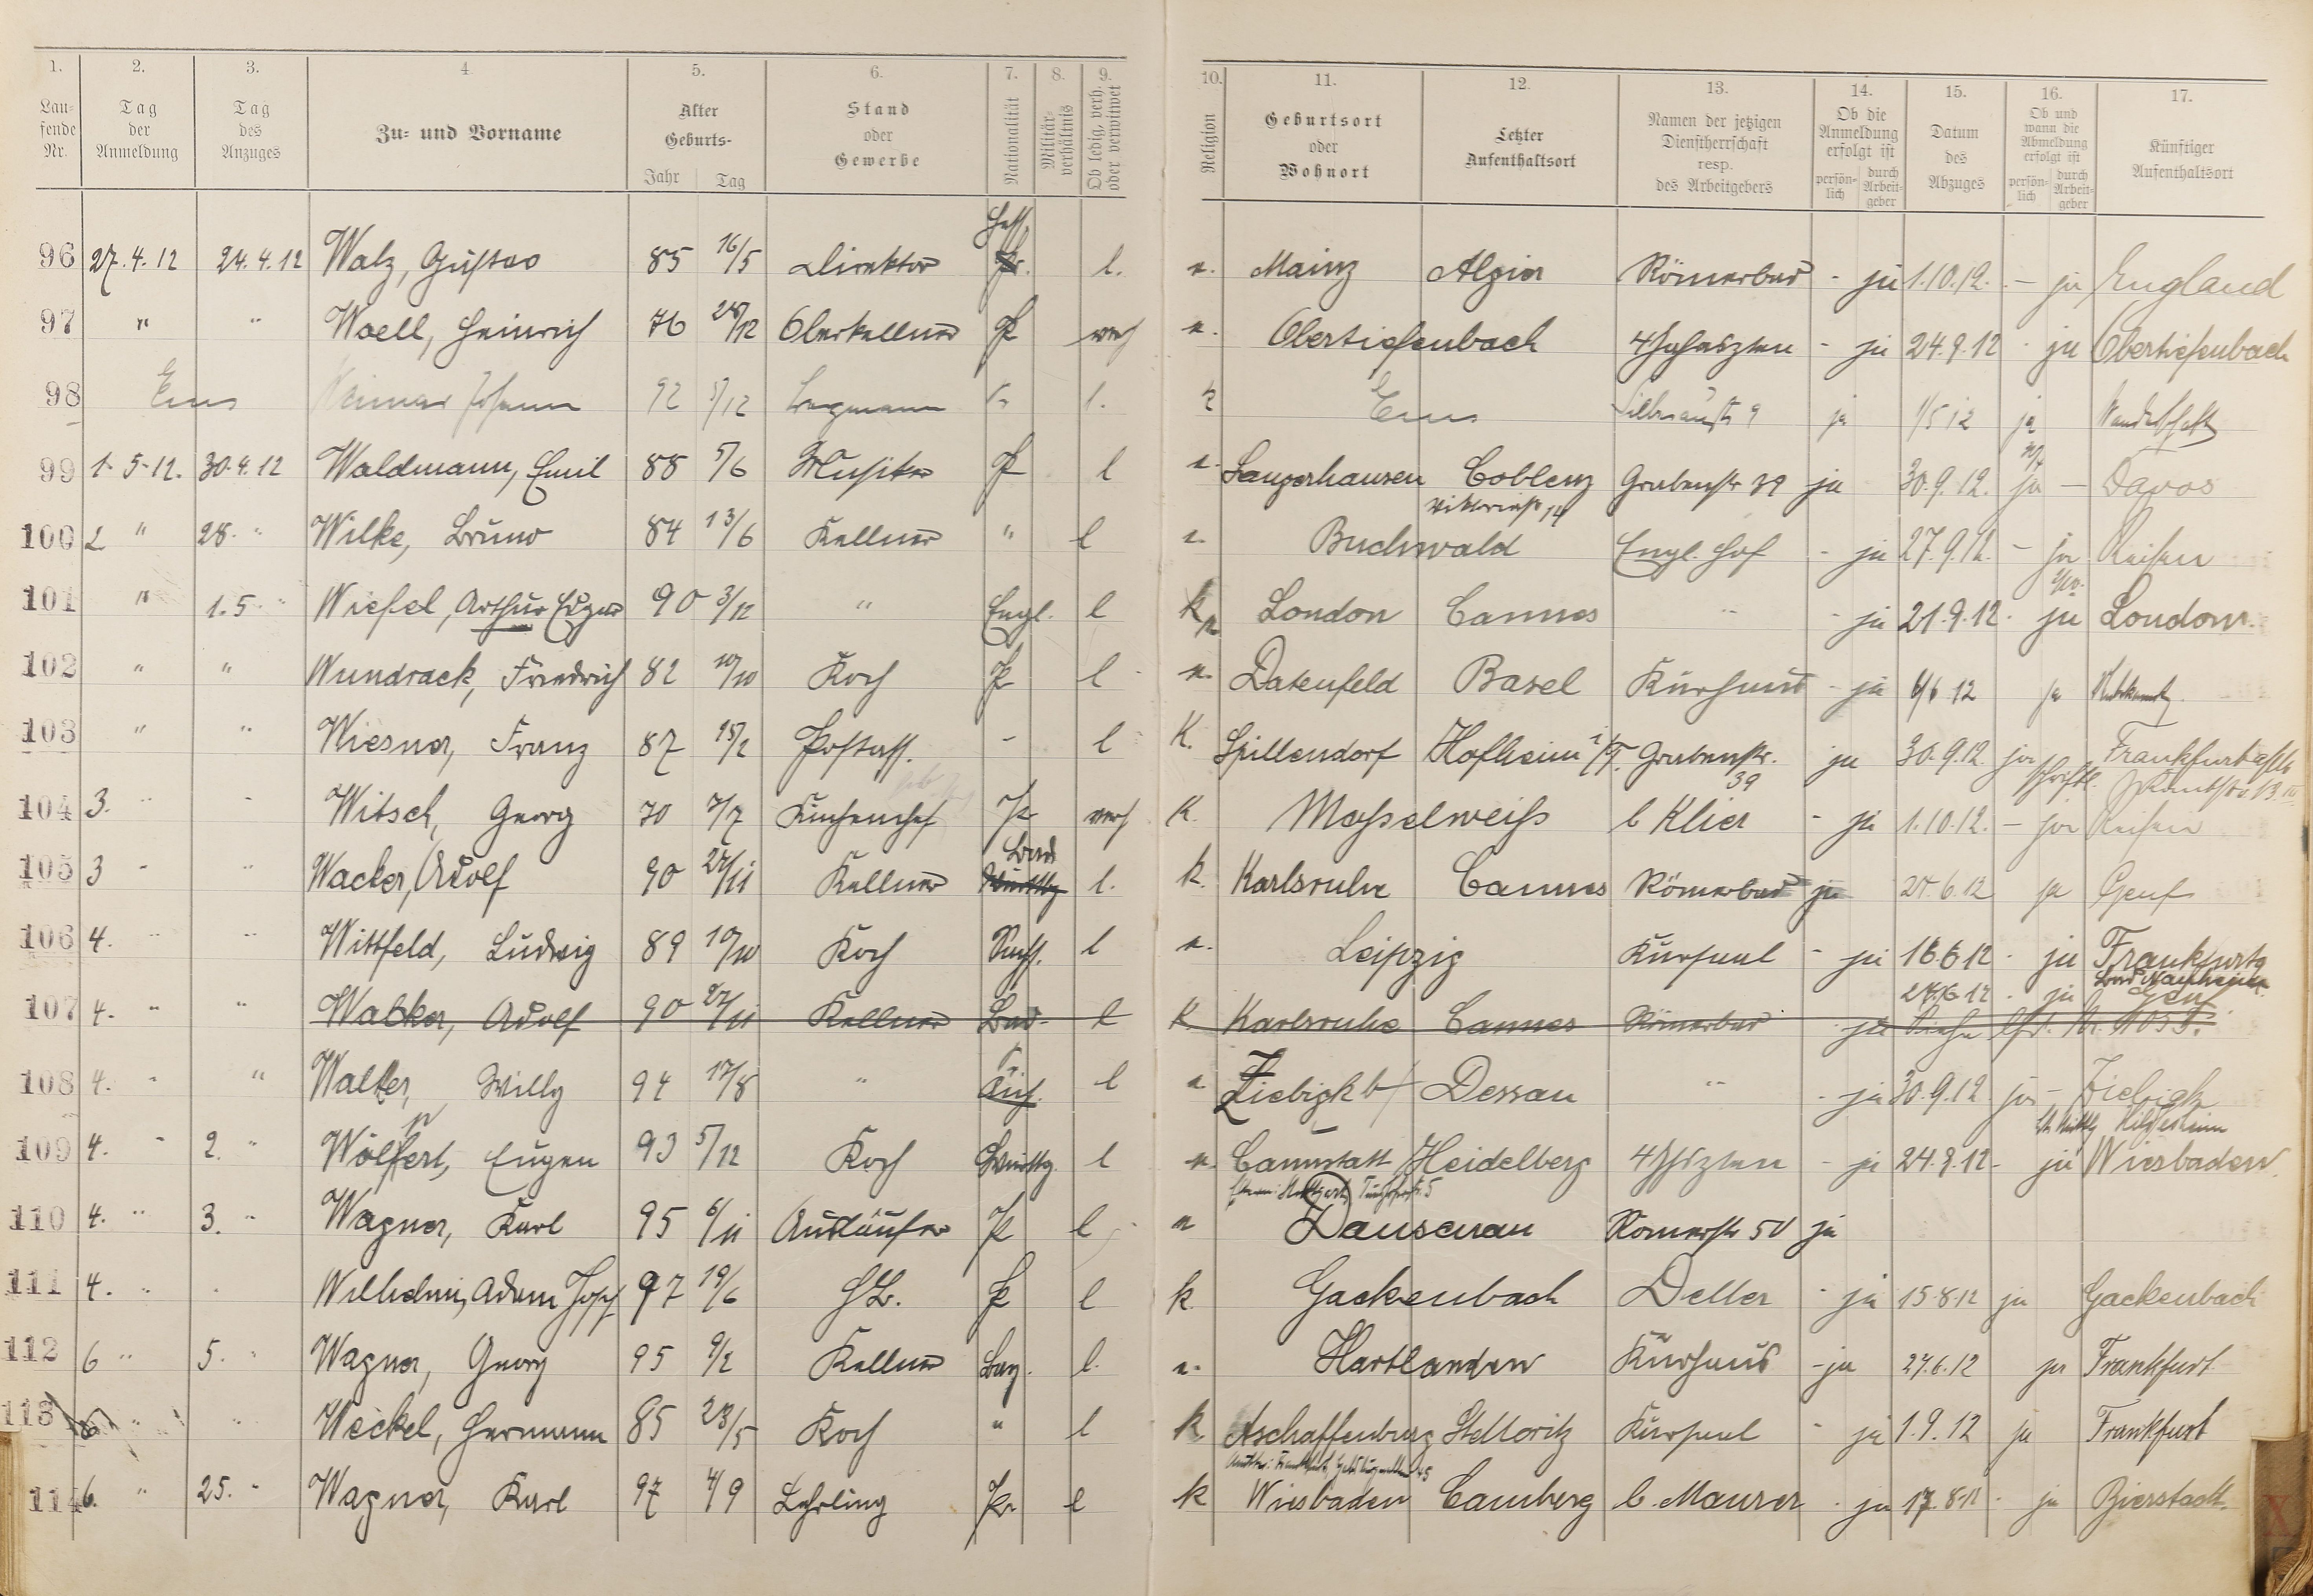 1. 2. 3. 4 5. 6. 7. 8. 9. 10. 11. 12. 13. 14. 15. 16. 17.
Lau-fende Nr. Tag der Anmeldung Tag des Anzuges Zu- und Vorname Alter Geburts- Jahr Tag Stand oder Gewerbe Nationalität Militär-verhältnis Ob ledig, verh. oder verwitwet Religion Geburtsort oder Wohnort Letzter Aufenthaltsort Namen der jetzigen Dienstherrschaft resp. des Arbeitgebers Ob die Anmeldung erfolgt ist persön-lich durch Arbeit-geber Datum des Abzuges Ob und wann die Abmeldung erfolgt ist persön-lich durch Arbeit-geber Künftiger Aufenthaltsort
Hess.
96 27.4.12 24.4.12 Walz, Gustav 85 16/5 Direktor Pr. l. e. Mainz Algier Römerbad - ja 1.10.12. - ja England
97 " " Woell, Heinrich 76 Oberkellner P verh e. Obertiefenbach 4 Jahreszten - ja 24.9.12 - ja Obertiefenbach
98 Ems Johann 92 5/12 l. k Ems 9 ja 1/5 12 ja Wanderschaft
99 1.5.12. 30.4.12 Waldmann, Emil 88 5/6 Musiker P l e. Sangerhausen Coblenz Grabenstr 39 ja 30.9.12. ja - Davos
Viktoriastr 14
100 2 " 28. " Wilke, Bruno 84 13/6 Kellner " l e. Buchwald Engl. Hof - ja 27.9.12. - ja Reisen
101 " 1.5. " Wiesel, Arthur Eugen 90 3/12 " Engl. l k London Cannes " - ja 21.9.12. ja London.
102 " " Wundrack, Friedrich 82 10/10 Koch P l e. Datenfeld Basel Kurhaus - ja 6/6 12 ja
103 " " Wiesner, Franz 87 15/2 Postass. - l K. Spillendorf Hofheim i/T. Grabenstr. 39 ja 30.9.12. ja schriftl. Frankfurt
104 3. " - Witsch, Georg 70 7/7 Küchenchef P verh K. Mosselweiss b Klier - ja 1.10.12. - ja Reisen
Bad
105 3 - " Wacker, Adolf 90 27/11 Kellner Württbg l. k. Karlsruhe Cannes Römerbad ja 27.6.12 ja Genf
106 4. " " Wittfeld, Ludwig 89 10/10 Koch Sachs. l e. Leipzig Kursaal - ja 16.6.12 - ja Frankfurt
Bad Nauheim
27.6.12 - ja Genf
107 4. " " Wacker, Adolf 90 27/11 Kellner Bad. l k Karlsruhe Cannes Römerbad - ja Siehe lfd. Nr. 105.
108 4. " " Walter, Willy 94 17/8 " l e. Ziebigk b/ Dessau " - ja 30.9.12 ja - Ziebigk
Hildesheim
109 4. " 2. " Wölfert, Eugen 93 5/12 Koch Württbg. l e. Cannstatt Heidelberg 4 Jhrszten - ja 24.9.12 - ja Wiesbaden
110 4. " 3. " Wagner, Karl 95 6/11 Ausläufer P l e Dausenau Römerstr 50 ja
111 4. " " Wilhelmi, Adam Josef 97 19/6 P l k. Gackenbach Deller - ja 15.8.12 ja Gackenbach
112 6 " 5. " Wagner, Georg 95 9/2 Kellner Bay. l. e. Hartlanden Kurhaus - ja 27.6.12 ja Frankfurt
113 " " Weckel, Hermann 85 23/5 Koch " l k Aschaffenburg St Moritz Kursaal - ja 1.9.12 ja Frankfurt
114 6. " 25. " Wagner, Karl 97 4/9 Lehrling Pr. l k Wiesbaden Camberg b. Maurer - ja 17.8.12 - ja Bierstadt.